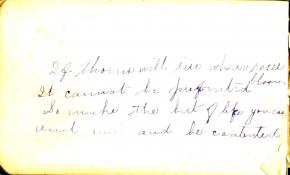 If thorns will live where roses bloom,
It cannot be prevented
So make the best of life you can
and and be contented